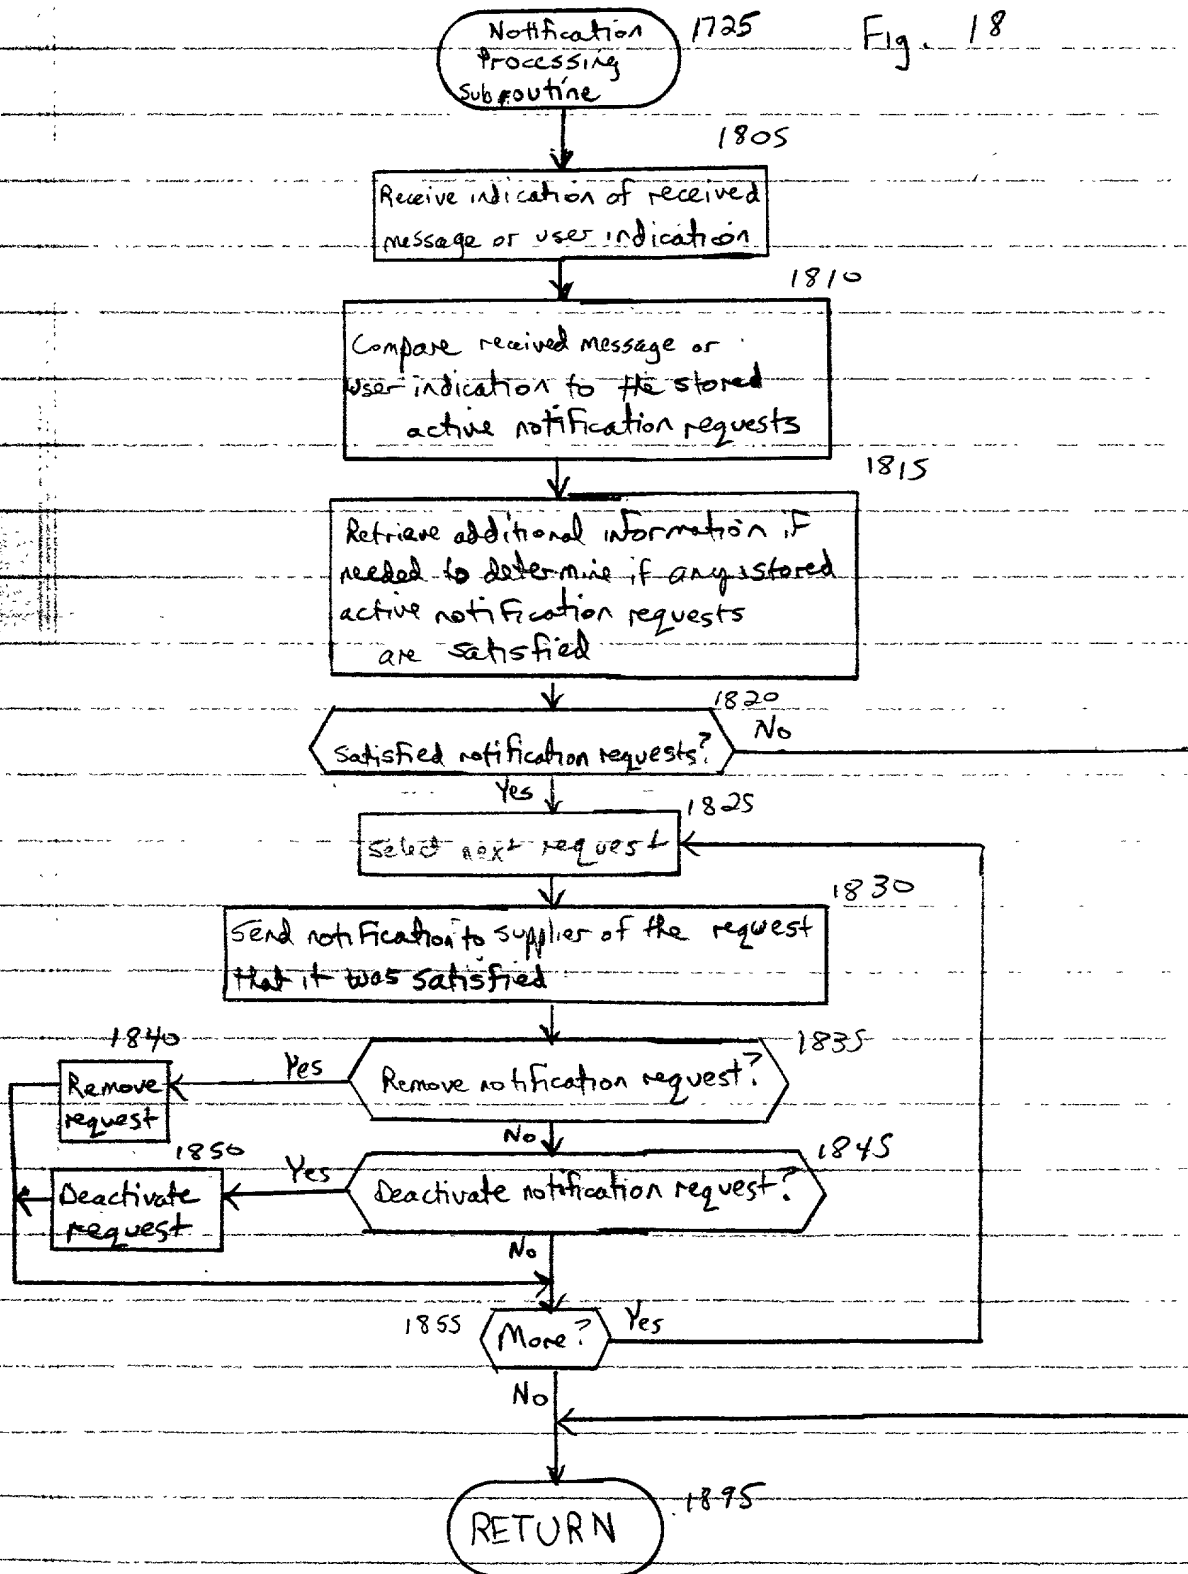 Notification 1725 Fig. 18
Processing
Subroutine
1805
Receive indication of received
message or user indication
1810
Compare received message or
user indication to the stored
active notification requests
1815
Retrieve additional information if
needed to determine if any stored
active notification requests
are satisfied
1820
Satisfied notification requests? No
Yes
1825
Select next request
1830
Send notification to supplier of the request
that it was satisfied
1835
Remove notification request?
Yes
1840
Remove
request
No
1845
Deactivate notification request?
Yes
1850
Deactivate
request
No
1855 More? Yes
No
1895
RETURN